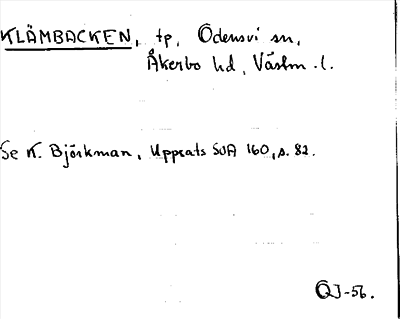 KLÄMBACKEN, tp, Odensvi sn,
Åkerbo hd, Västm.l.
Se K. Björkman, Uppsats SOA 160, s. 82.
QJ-56.